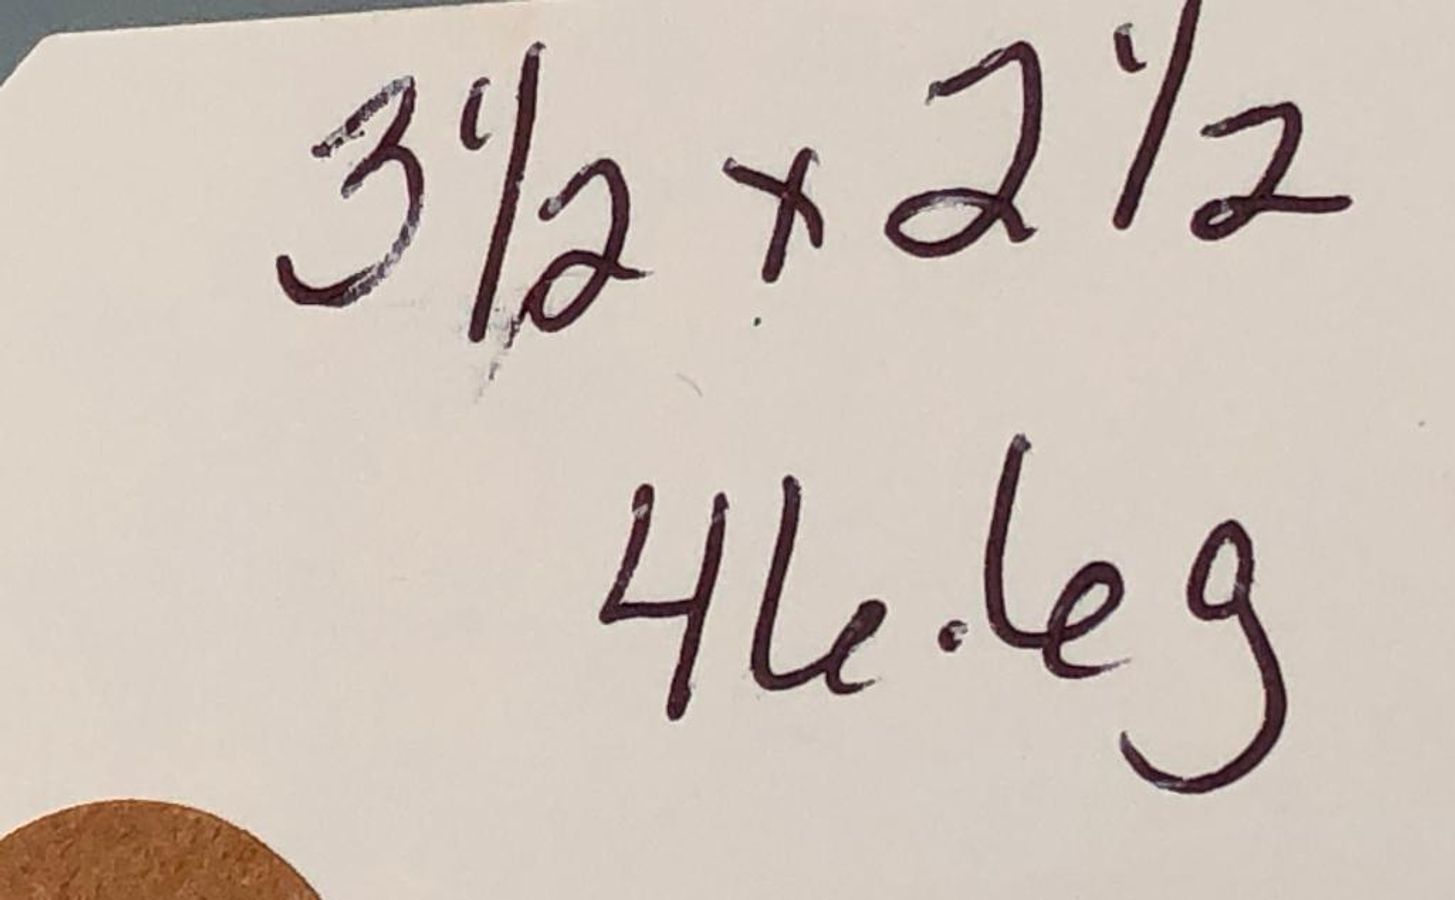 3 1/2 x 2 1/2
46.6g